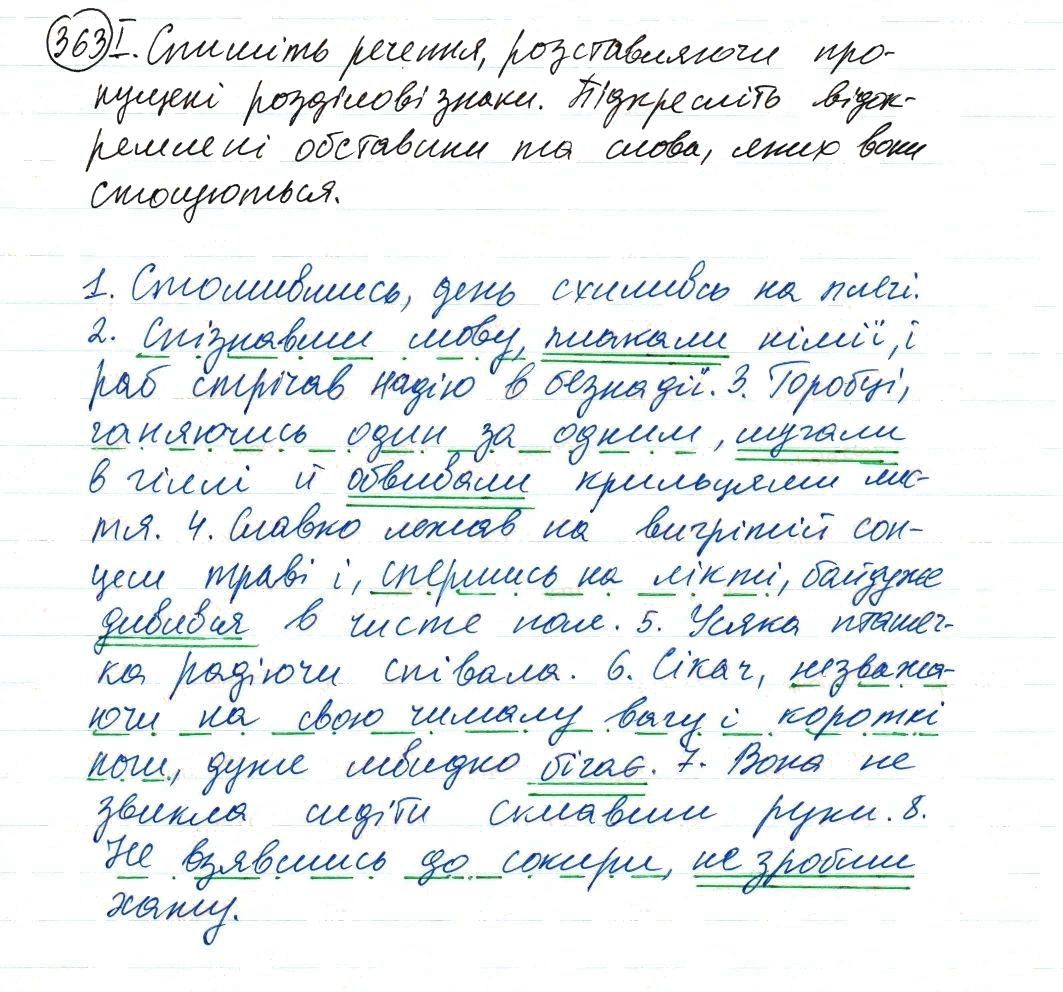 363 I. Спишіть речення, розставляючи про-
пущені розділові знаки. Підкресліть відок-
ремлені обставини та слова, яких вони
стосуються.
1. Стомившись, день схиливсь на плечі.
2. Спізнавши мову, плакали німії, і
раб стрічав надію в безнадії. 3. Горобці,
ганяючись один за одним, шугали
в гіллі й оббивали крильцями лис-
тя. 4. Славко лежав на вигрітій сон-
цем траві і, спершись на лікті, байдуже
дивився в чисте поле. 5. Усяка пташеч-
ка радіючи співала. 6. Сікач, незважа-
ючи на свою чималу вагу і короткі
ноги, дуже швидко бігає. 7. Вона не
звикла сидіти склавши руки. 8.
Не взявшись до сокири, не зробиш
хати.